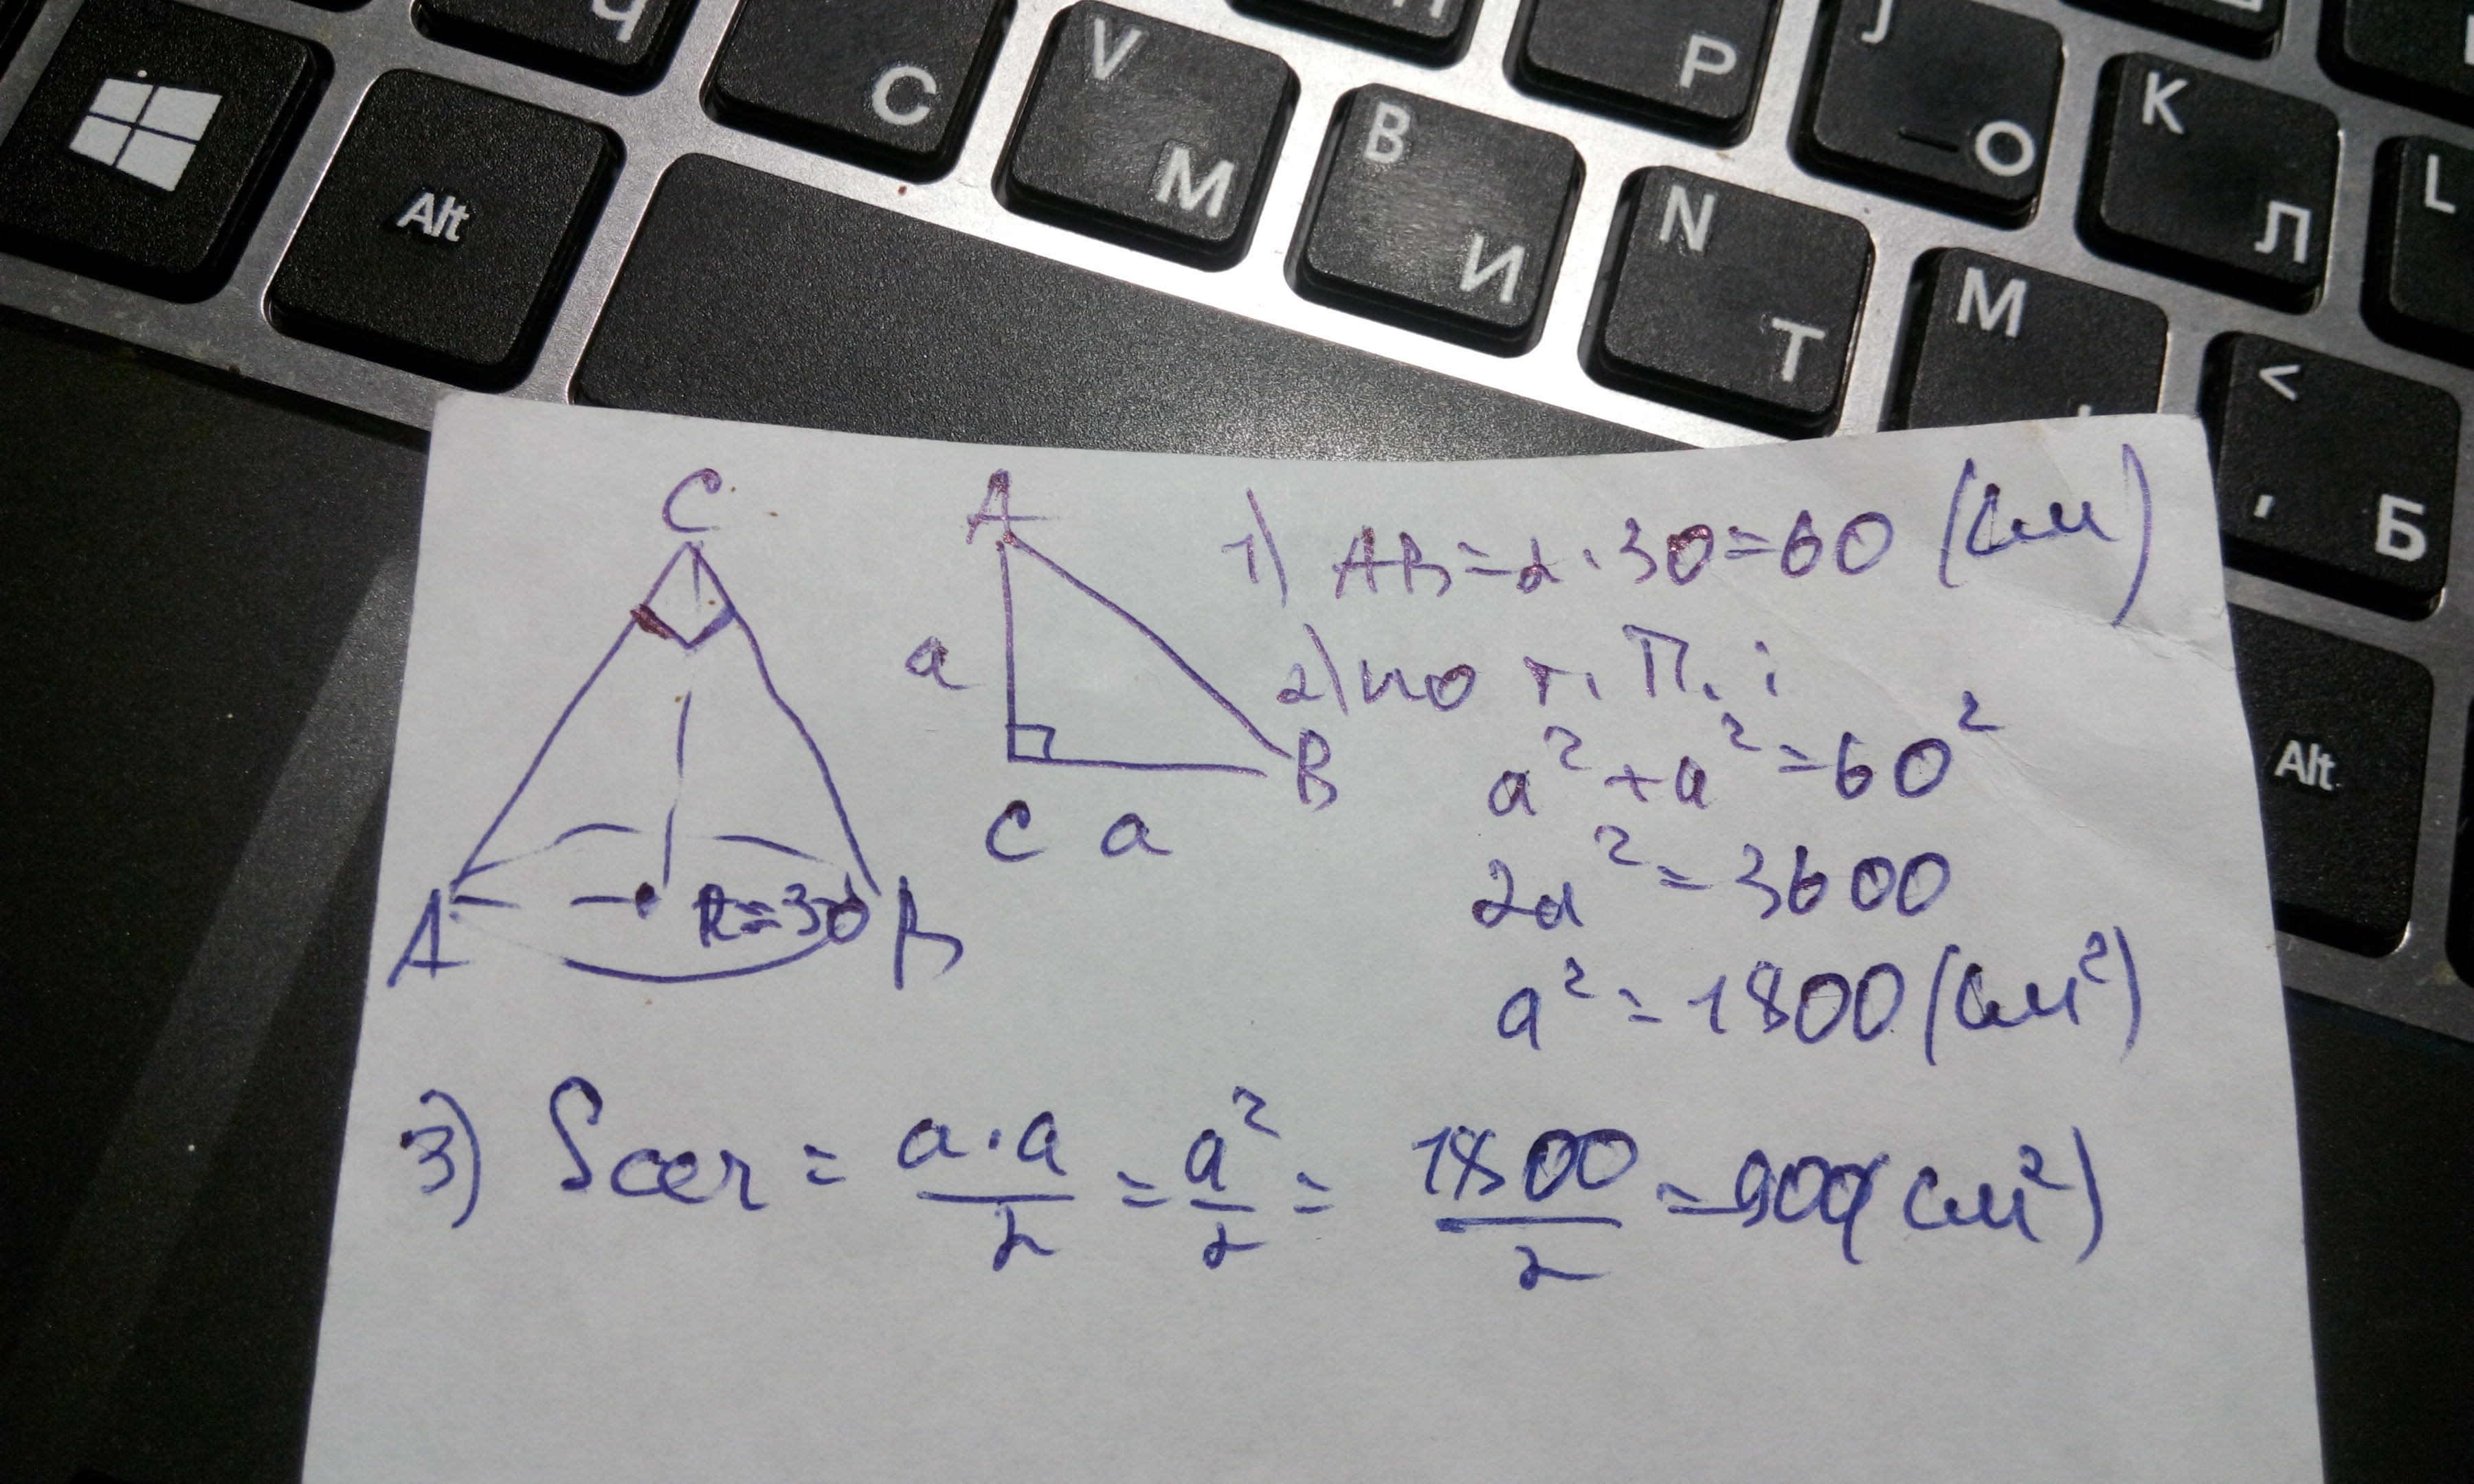 Ч
Alt
С
V М
B И
Р
N Т
J О
K Л
M
L
< , Б
Alt
C
A B
R=30
A
a
C a B
1) AB=2·30=60 (см)
2) по т. П. :
a²+a²=60²
2a²=3600
a²=1800 (см²)
3) Sсеч = a·a/2 = a²/2 = 1800/2 = 900 (см²)